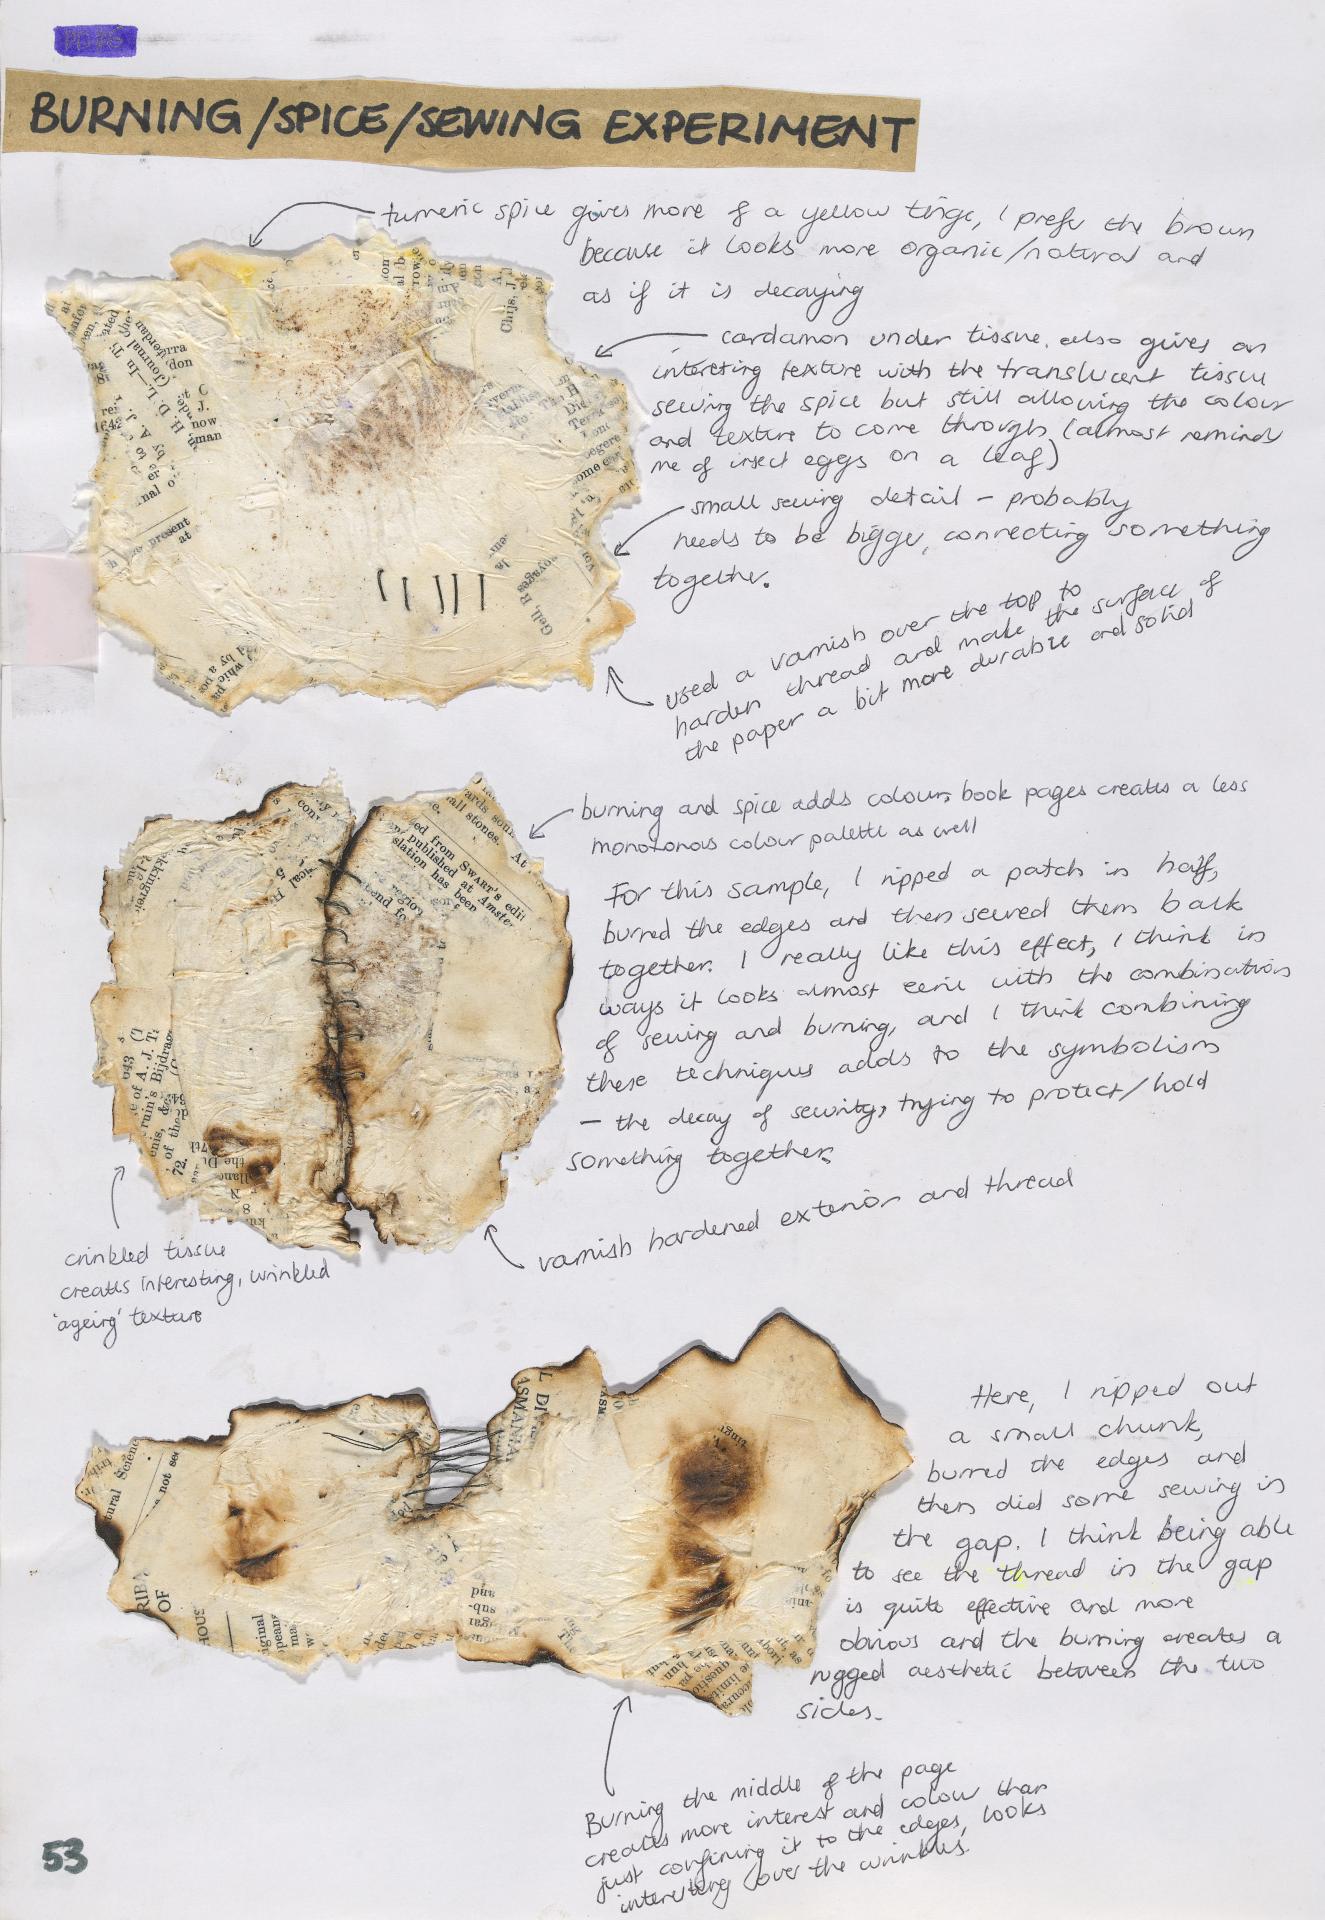 BURNING/SPICE/SEWING EXPERIMENT
tumeric spice gives more of a yellow tinge, I prefer the brown
because it looks more organic/natural and
as if it is decaying
cardamon under tissue, also gives an
intersting texture with the translucent tissue
sewing the spice but still allowing the colour
and texture to come through (almost reminds
me of insect eggs on a leaf)
small sewing detail - probably
needs to be bigger, connecting something
together.
used a varnish over the top to
harden thread and make the surface of
the paper a bit more durable and solid
burning and spice adds colour, book pages creates a less
monotonous colour palette as well
For this sample, I ripped a patch in half,
burned the edges and then sewed them back
together. I really like this effect, I think in
ways it looks almost eerie with the combination
of sewing and burning, and I think combining
these techniques adds to the symbolism
- the decay of security, trying to protect/hold
something together.
varnish hardened exterior and thread
crinkled tissue
creates interesting, wrinkled
'ageing' texture
Here, I ripped out
a small chunk,
burned the edges and
then did some sewing in
the gap. I think being able
to see the thread in the gap
is quite effective and more
obvious and the burning creates a
rugged aesthetic between the two
sides.
Burning the middle of the page
creates more interest and colour than
just confining it to the edges, looks
interesting over the wrinkles.
53
Chijs, J.
Gell, R
oyages
present
at
ed from SWART'S edit
published at Amste
slation has been
all stones. At
region
of A. J. T.
ruin's Bijdrag
of the
72.
the Du
N
8
tural Scienc
not see
RIBA
OF
HOUS
L DI
ASMANIA
sub-
and